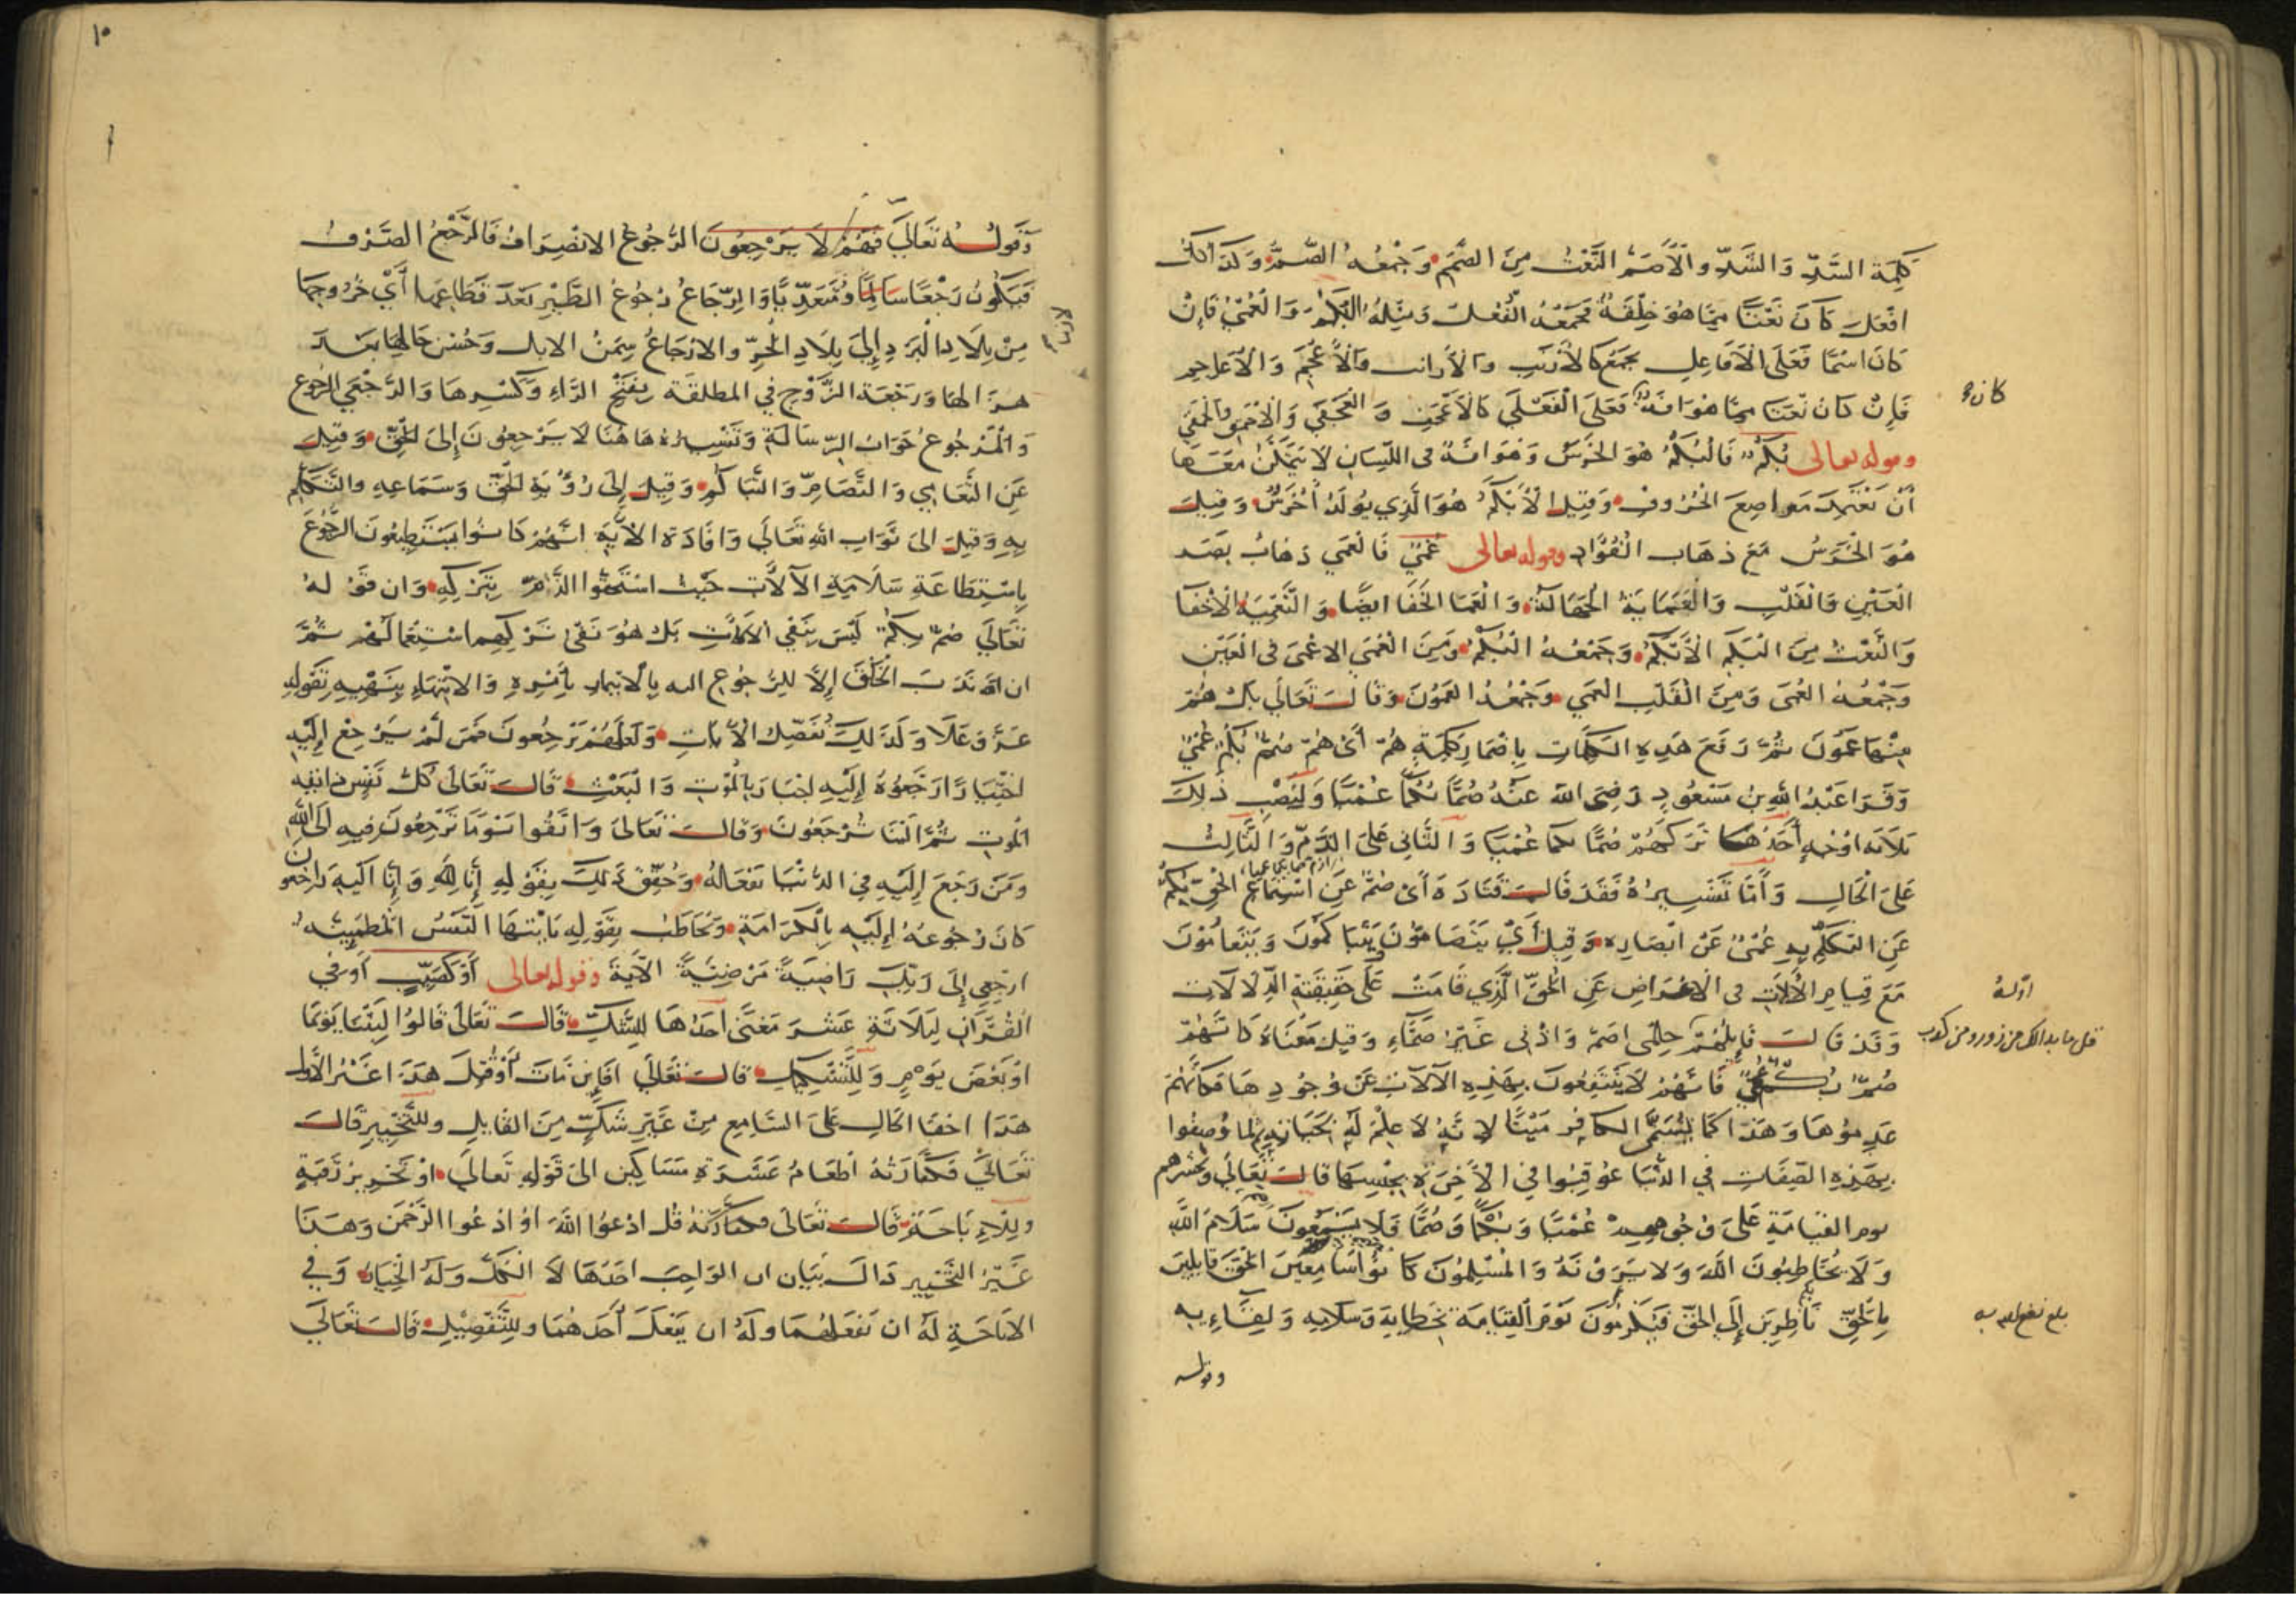 كلمة السَّدِّ وَالشَّدِّ والأصَمّ النَّعْتُ مِنَ الصَّمَمِ وَجَمْعُهُ الصُّمُّ وَكَذَلِكَ
افْعَلُ كَانَ نَعْتًا مِمَّا هُوَ خِلْقَةٌ فَجَمْعُهُ الفُعْلُ وَمِثْلُهُ الْبُكْمُ وَالْعُمْيُ فَإِنْ
كَانَ اسْمًا فَعَلَى الْافَاعِلِ يُجْمَعُ كالأرنب والأرانب والأعجم وَالأعاجم
فَإِنْ كَانَ نَعْتًا مِمَّا هُوَ افَةٌ فَعَلَى الْفَعْلَى كالأعجف وَ العَجْفَى وَالأحمق والحمقى
وقوله تعالى بُكْمٌ فَالْبُكْمُ هُوَ الخَرَسُ وَهُوَ افَةٌ في اللّسَانِ لا يَتَمَكَّنُ مَعَهَا
أنْ يَعْتَمِدَ مَوَاضِعَ الْحُرُوفِ وَقِيلَ الْأَبْكَمُ هُوَ الَّذِي يُولَدُ أَخْرَسَ وَقِيلَ
هُوَ الْخَرَسُ مَعَ ذهَابِ الْفُؤَادِ وقوله تعالى عُمْيٌ فَالْعَمَى ذهَابُ بَصَرِ
الْعَيْنِ وَالْقَلْبِ وَالْعَمَايَةُ الْجَهَالَةُ وَالْعَمَا الْخَفَا ايضًا وَالتَّعْمِيَةُ الْاخْفَا
وَالنَّعْتُ مِنَ الْبَكَمِ الْأَبْكَمُ وَجَمْعُهُ الْبُكْمُ وَمِنَ الْعَمَى الاعْمَى في الْعَيْنِ
وَجَمْعُهُ العُمْيُ وَمِنَ الْقَلْبِ العَمِي وَجَمْعُهُ العَمُونَ وَقَالَ تَعَالَى بَلْ هُمْ
مِنْهَا عَمُونَ ثُمَّ رَفَعَ هَذِهِ الكَلِمَاتِ بِإِضْمَارِ كَلِمَةِ هُمْ أَيْ هُمْ صُمٌّ بُكْمٌ عُمْيٌ
وَقَرَا عَبْدُ اللهِ بنُ مَسْعُودٍ رَضِيَ الله عَنْهُ صُمًّا بُكْمًا عُمْيًا وَلِنَصْبِ ذَلِكَ
ثَلَاثَة اوْجُهٍ أَحَدُهَا تَرَكَهُمْ صُمًّا بكما عُمْيًا وَالثَّانِي عَلَى الذَّمِّ وَالثَّالِثُ
عَلَى الْحَالِ وَأَمَّا تَفْسِيرُهُ فَقَدْ قَالَ قَتَادَةُ أَيْ صُمٌّ عَنِ اسْتِمَاعِ الْحَقِّ بُكْمٌ
عَنِ التَّكَلُّمِ بِهِ عُمْيٌ عَنْ ابْصَارِهِ وَقِيلَ أَيْ يَتَصَامُّونَ وَيَتَبَاكَمُونَ وَيَتَعَامَوْنَ
مَعَ قِيَامِ الْآلَاتِ في الاعْرَاضِ عَنِ الْحَقِّ الَّذِي قَامَتْ عَلَى حَقِيقَتِهِ الدِّلَالَاتُ
وَقَدْ قَالَ قَائِلُهُمْ حِلْمِي اصَمُّ وَاذْنِي غَيْرُ صَمَّاءِ وَقِيلَ مَعْنَاهُ كَانَّهُمْ
صُمٌّ بُكْمٌ عُمْيٌ فَانَّهُمْ لَا يَنْتَفِعُونَ بِهَذِهِ الآلَاتِ عَنْ وُجُودِهَا فَكَأَنَّهُمْ
عَدِمُوهَا وَهَذَا كَمَا يُسَمَّى الكَافِر مَيْتًا لِانَّهُ لَا عِلْمَ لَهُ بِحَيَاتِهِ لما وُصِفُوا
بِهَذِهِ الصِّفَاتِ فِي الدُّنْيَا عُوقِبُوا فِي الْآخِرَةِ بِجِنْسِهَا قَالَ تَعَالَى ونحشرهم
يوم القيَامَةِ عَلَى وُجُوهِهِمْ عُمْيًا وَبُكْمًا وَصُمًّا فَلَا يَسْمَعُونَ سَلَامَ اللَّهِ
وَلَا يُخَاطِبُونَ اللَّهَ وَلَا يَرَوْنَهُ وَالْمُسْلِمُونَ كَانُوا سَامِعِينَ الْحَقَّ قَايِلِينَ
بِالْحَقِّ نَاظِرِينَ إِلَى الحَقِّ فَيُكْرَمُونَ يَوْمَ الْقِيَامَةِ بِخِطَابِهِ وَسَلَامِهِ وَلِقَاءِ بِهِ
وقوله
كان
أوله
قل ما بدا لك من زور ومن كذب
١٠
وَقَوْلُهُ تَعَالَى فَهُمْ لَا يَرْجِعُونَ الرُّجُوعُ الانْصِرَافُ فَالرَّجْعُ الصَّرْفُ
فَيَكُونُ رَجْعًا لَازِمًا وَمُتَعَدِّيًا وَالرِّجَاعُ رُجُوعُ الطَّيْرِ بَعْدَ قَطَاعِهَا أَيْ خُرُوجِهَا
مِنْ بِلَادِ الْبَرْدِ إِلَى بِلَادِ الْحَرِّ والارْجَاعُ سِمَنُ الابِلِ وَحُسْنُ حَالِهَا بَعْدَ
هُزَالِهَا وَرَجْعَة الزَّوْجِ فِي المطلقَة بِفَتْحِ الرَّاءِ وَكَسْرِهَا وَالرُّجْعَى الرُّجُوع
وَالْمَرْجُوعُ جَوَابُ الرِّسَالَةِ وَتَفْسِيرُهُ هَاهُنَا لَا يَرْجِعُونَ إِلَى الْحَقِّ وَقِيلَ
عَنِ التَّعَامِي وَالتَّصَامِّ وَالتَّبَاكُمِ وَقِيلَ إِلَى رُؤْيَةِ الْحَقِّ وَسَمَاعِهِ والتَّكَلُّمِ
بِهِ وَقِيلَ الى ثَوَابِ اللهِ تَعَالَى وَافَادَة الآيَةِ انَّهُمْ كَانُوا يَسْتَطِيعُونَ الرُّجُوعَ
بِاسْتِطَاعَةِ سَلَامَةِ الآلَاتِ حَيْثُ اسْتَحَقُّوا الذَّمَّ بِتَرْكِهِ وَان قَوْلهُ
تَعَالَى صُمٌّ بُكْمٌ لَيْسَ بِنَفْيِ الآلَاتِ بَلْ هُوَ نَفْيُ تَرْكِهِم اسْتِعْمَالَهُمْ ثُمَّ
ان الله نَدَبَ الْخَلْقَ إِلَى الرُّجُوعِ اليه بِالِائْتِمَارِ بِأَمْرِهِ وَالِانْتِهَاءِ بِنَهْيِهِ بِقَوْلِهِ
عَزَّ وَعَلَا وَكَذَلِكَ نُفَصِّلُ الآيَاتِ وَلَعَلَّهُمْ يَرْجِعُونَ فَمَنْ لَمْ يَرْجِعْ إِلَيْهِ
اخْتِيَارًا رَجَعُوهُ إِلَيْهِ اجْبَارًا بِالْمَوْتِ وَالْبَعْثِ قَالَ تَعَالَى كُلُّ نَفْسٍ ذائقة
الموت ثُمَّ الَيْنَا تُرْجَعُونَ وَقَالَ تَعَالَى وَاتَّقُوا يَوْمًا تُرْجَعُونَ فِيهِ إلى الله
وَمَنْ رَجَعَ إِلَيْهِ فِي الدُّنْيَا بفعاله وَحَقَّقَ ذَلِكَ بِقَوْلِهِ إِنَّا لِلَّهِ وَإِنَّا الَيْهِ رَاجِعُون
كَانَ رُجُوعُهُ إِلَيْهِ بِالْكَرَامَةِ وَيُخَاطَبُ بِقَوْلِهِ يَايَّتُهَا النَّفْسُ الْمُطْمَئِنَّةُ
ارْجِعِي إِلَى رَبِّكِ رَاضِيَةً مَرْضِيَّةً الآيَةَ وقوله تعالى أَوْ كَصَيِّبٍ أَوْ فِي
الْقُرْآنِ لِثَلَاثَةَ عَشَرَ مَعْنًى أَحَدُهَا لِلشَّكِّ قَالَ تَعَالَى قَالُوا لَبِثْنَا يَوْمًا
اوْ بَعْضَ يَوْمٍ وَلِلتَّشْكِيكِ قَالَ تَعَالَى افَإِنْ مَاتَ أَوْ قُتِلَ هَذَا غَيْرُ الأَوَّلِ
هَذَا اخْفَا الحَالِ عَلَى السَّامِعِ مِنْ غَيْرِ شَكٍّ مِنَ القَايِلِ وللتَّخْيِيرِ قَالَ
تَعَالَى فَكَفَّارَتُهُ اطْعَامُ عَشَرَةِ مَسَاكِينَ الى قَوْلِهِ تَعَالَى اوْ تَحْرِيرُ رَقَبَةٍ
وَلِلْإِبَاحَةِ قَالَ تَعَالَى قُلِ ادْعُوا اللَّهَ اوُ ادْعُوا الرَّحْمَنَ وَهَذَا
غَيْرُ التَّخْيِيرِ ذَاكَ بَيَان ان الوَاجِبَ احَدُهَا لَا الكُلُّ وَلَهُ الْخِيَارُ وَفِي
الابَاحَةِ لَهُ ان يَفْعَلَهُمَا وَلَهُ ان يَفْعَلَ أَحَدَهُمَا وَلِلتَّفْصِيلِ قَالَ تَعَالَى
لازما